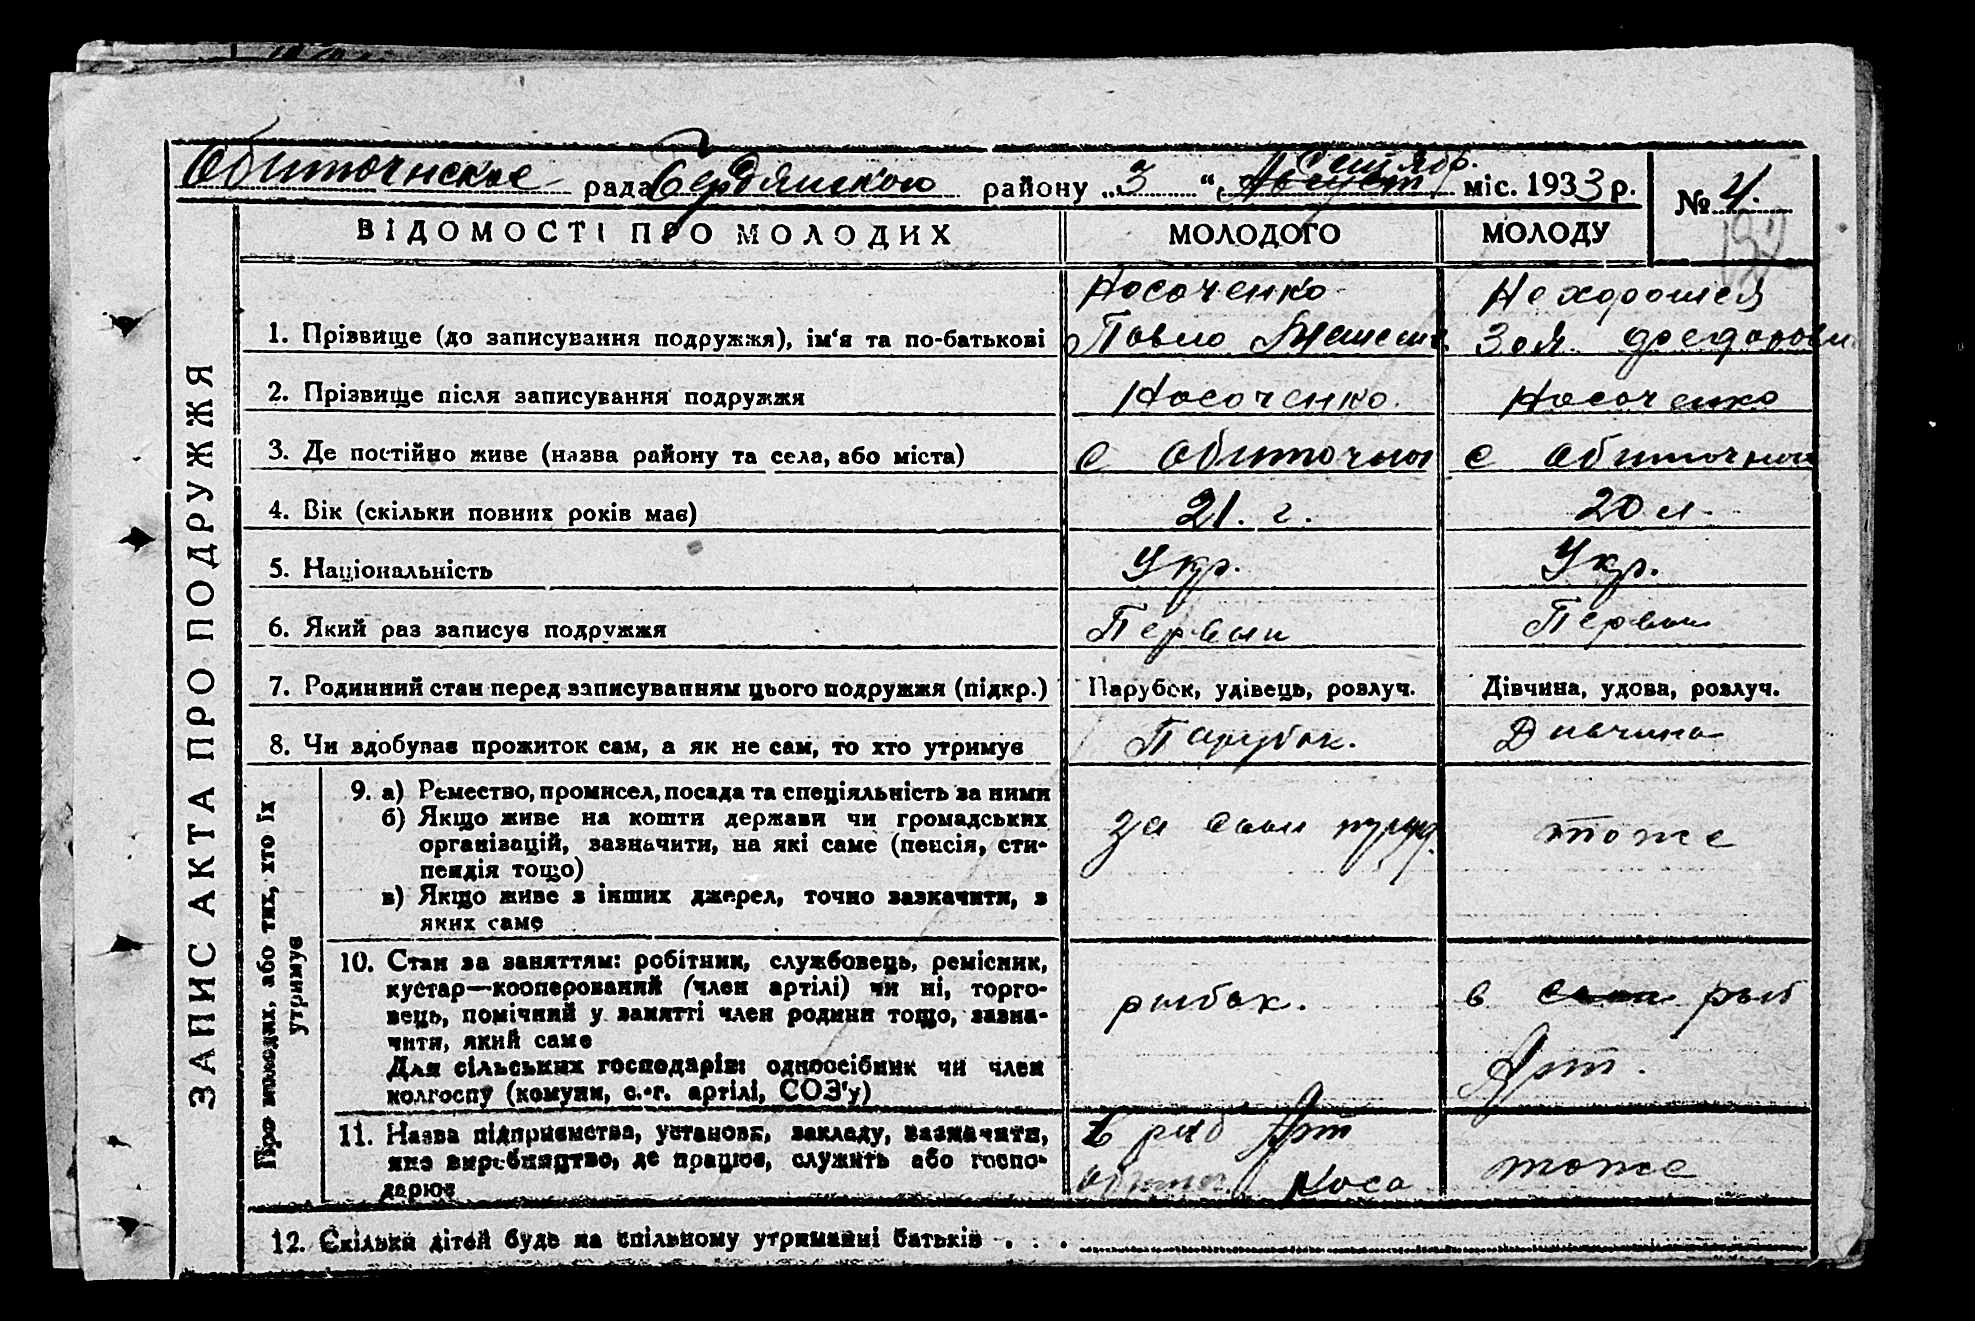 Обиточнское рада Бердянского району 3 " Август Сентябр. міс. 1933 р. № 4.
ВІДОМОСТІ ПРО МОЛОДИХ МОЛОДОГО МОЛОДУ
Носоченко Нехорошея
1. Прізвище (до записування подружжя), ім'я та по-батькові Павло Зоя
2. Прізвище після записування подружжя Носоченко. Носоченко
3. Де постійно живе (назва району та села, або міста) с Обиточное с Обиточное
4. Вік (скільки повних років має) 21. г. 20 л
5. Національність Укр. Укр.
6. Який раз записує подружжя Первый Первый
7. Родинний стан перед записуванням цього подружжя (підкр.) Парубок, удівець, розлуч. Дівчина, удова, розлуч.
8. Чи здобував прожиток сам, а як не сам, то хто утримує Парубок. Дивчина
ЗАПИС АКТА ПРО ПОДРУЖЖЯ
Про молодих, або тих, хто їх
утримує
9. а) Ремество, промисел, посада та спеціяльність за ними
б) Якщо живе на кошти держави чи громадських за свои тоже
організацій, зазначити, на які саме (пенсія, сти-
пендія тощо)
в) Якщо живе з інших джерел, точно зазначити, з
яких саме
10. Стан за заняттям: робітник, службовець, ремісник,
кустар—кооперований (член артілі) чи ні, торго- рыбак. в рыб
вець, помічний у занятті член родини тощо, зазна-
чити, який саме Арт.
Для сільських господарів: одноосібник чи член
колгоспу (комуни, с.-г. артілі, СОЗ'у)
11. Назва підприємства, установи, закладу, зазначити, в рыб Арт
яке виробництво, де працює, служить або госпо- Коса тоже
дарює
12. Скільки дітей буде на спільному утриманні батьків . . .